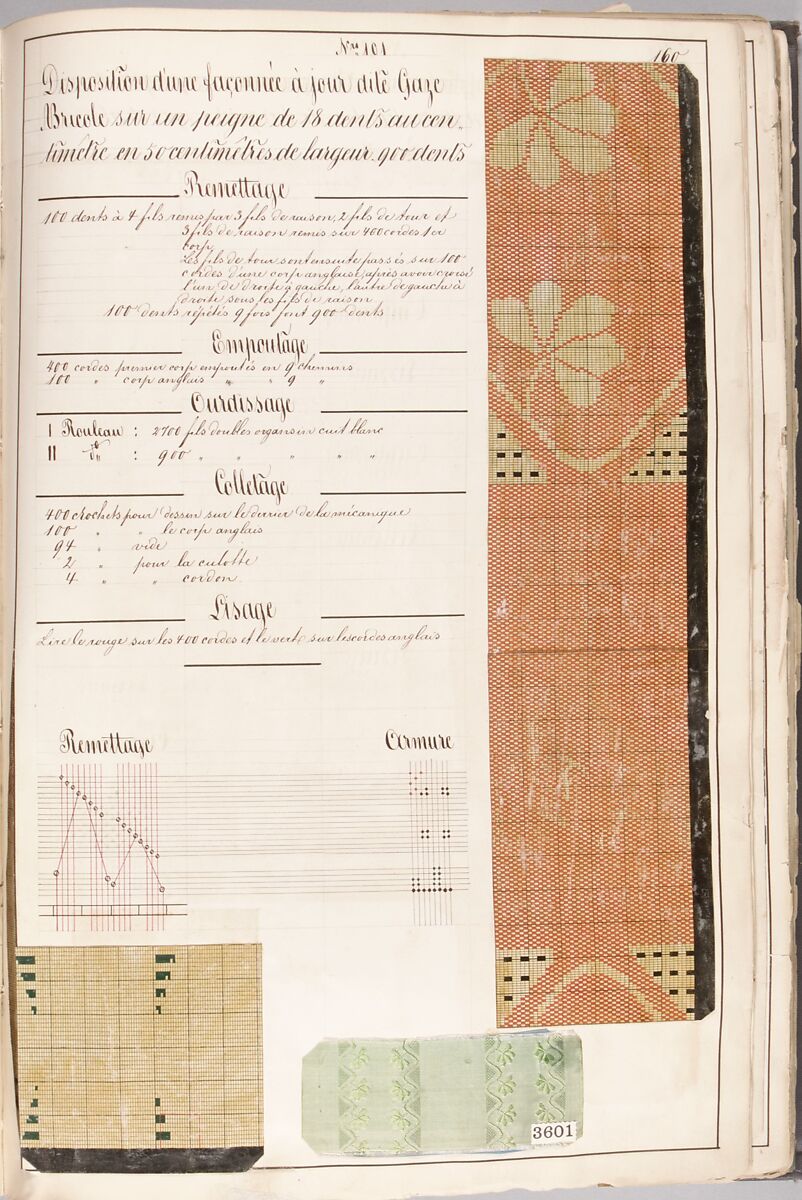 Nro 101
160
Disposition d'une façonnée à jour dite Gaze
Bricole sur un peigne de 18 dents au cen-
timètre en 50 centimètres de largeur. 900 dents
Remettage
100 dents à 4 fils remis par 3 fils de raison, 2 fils de tour et
3 fils de raison remis sur 400 cordes 1er
corp.
Les fils de tour sont ensuite passés sur 100
cordes d'une corp anglaise, après avoir croisé
l'un de droite à gauche, l'autre de gauche à
droite sous les fils de raison
100 dents répétés 9 fois font 900 dents
Empoutage
400 cordes premier corp empoutés en 9 chemins
100 " corp anglais " " 9 "
Ourdissage
I Rouleau : 2700 fils doubles organsin cuit blanc
II do : 900 " " " " "
Colletage
400 crochets pour dessin sur le derrier de la mécanique
100 " " le corp anglais
94 " vide
2 " pour la culotte
4 " " cordon
Lisage
Lire le rouge sur les 400 cordes et le vert sur les cordes anglais
Remettage
Armure
3601